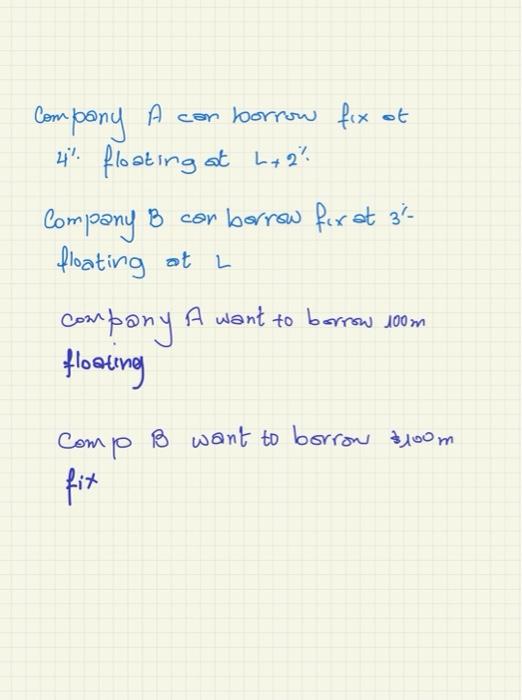 Company A can borrow fix at
4% floating at L+2%
Company B can borrow fix at 3%
floating at L
Company A want to borrow 100m
floating
Comp B want to borrow $100m
fix